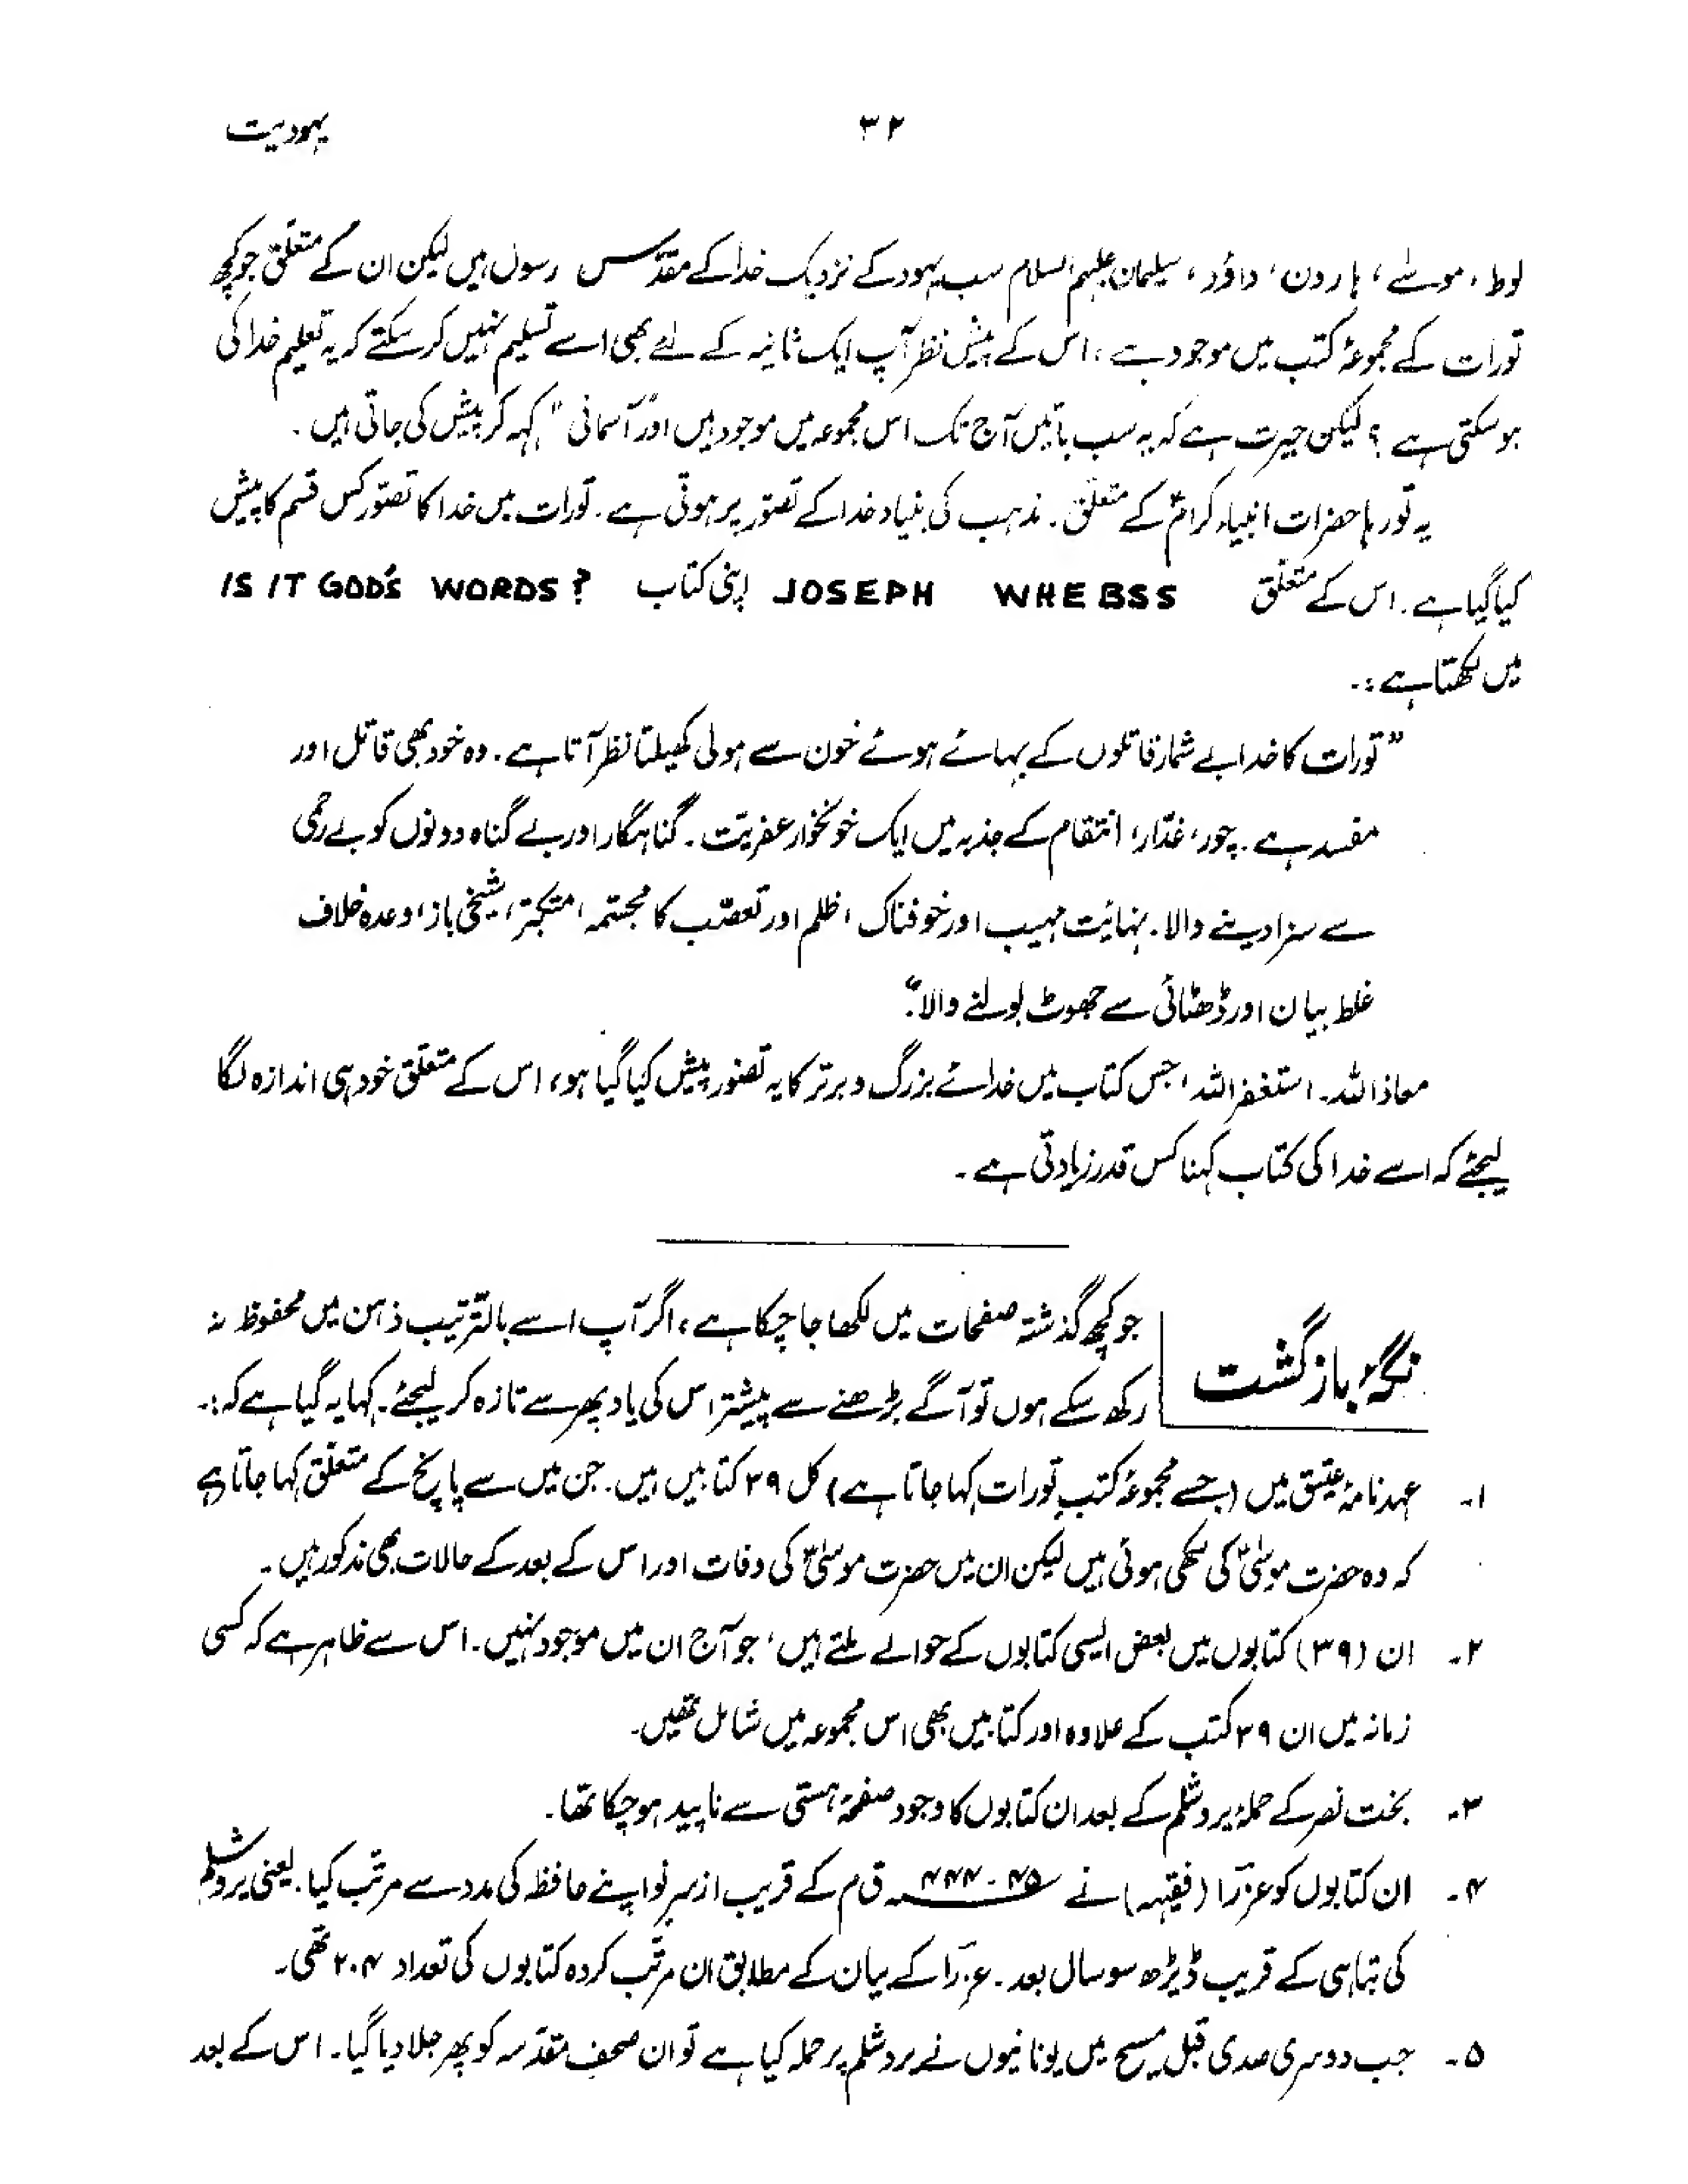 یہودیت
۳۲
لوط، موسےٰ، ہارون، داؤد، سلیمان علیہم السلام سب یہود کے نزدیک خدا کے مقدّس رسول ہیں لیکن ان کے متعلّق جو کچھ
تورات کے مجموعۂ کتب میں موجود ہے، اس کے پیشِ نظر آپ ایک ثانیہ کے لئے بھی اسے تسلیم نہیں کر سکتے کہ یہ تعلیم خدا کی
ہو سکتی ہے؟ لیکن حیرت ہے کہ یہ سب باتیں آج تک اس مجموعہ میں موجود ہیں اور "آسمانی" کہہ کر پیش کی جاتی ہیں۔
یہ تو رہا حضرات انبیاء کرامؑ کے متعلّق۔ مذہب کی بنیاد خدا کے تصوّر پر ہوتی ہے۔ تورات میں خدا کا تصوّر کس قسم کا پیش
کیا گیا ہے۔ اس کے متعلّق JOSEPH WHEBSS اپنی کتاب IS IT GOD'S WORDS?
میں لکھتا ہے:۔
"تورات کا خدا بے شمار قاتلوں کے بہائے ہوئے خون سے ہولی کھیلتا نظر آتا ہے۔ وہ خود بھی قاتل اور
مفسد ہے۔ چور، غدّار، انتقام کے جذبہ میں ایک خونخوار عفریت۔ گناہگار اور بے گناہ دونوں کو بے رحمی
سے سزا دینے والا۔ نہایت مہیب اور خوفناک، ظلم اور تعصّب کا مجسّمہ، متکبّر، شیخی باز، وعدہ خلاف
غلط بیان اور ڈھٹائی سے جھوٹ بولنے والا۔"
معاذ اللہ۔ استغفر اللہ، جس کتاب میں خدائے بزرگ و برتر کا یہ تصّور پیش کیا گیا ہو، اس کے متعلّق خود ہی اندازہ لگا
لیجئے کہ اسے خدا کی کتاب کہنا کس قدر زیادتی ہے۔
نگہِ بازگشت
جو کچھ گذشتہ صفحات میں لکھا جا چکا ہے، اگر آپ اسے بالترّتیب ذہن میں محفوظ نہ
رکھ سکے ہوں تو آگے بڑھنے سے پیشتر اس کی یاد پھر سے تازہ کر لیجئے۔ کہا یہ گیا ہے کہ:۔
۱۔ عہد نامۂ عتیق میں (جسے مجموعۂ کتبِ تورات کہا جاتا ہے) کل ۳۹ کتابیں ہیں۔ جن میں سے پانچ کے متعلّق کہا جاتا ہے
کہ وہ حضرت موسیٰؑ کی لکھی ہوئی ہیں لیکن ان میں حضرت موسیٰؑ کی وفات اور اس کے بعد کے حالات بھی مذکور ہیں۔
۲۔ ان (۳۹) کتابوں میں بعض ایسی کتابوں کے حوالے ملتے ہیں، جو آج ان میں موجود نہیں۔ اس سے ظاہر ہے کہ کسی
زمانہ میں ان ۳۹ کتب کے علاوہ اور کتابیں بھی اس مجموعہ میں شامل تھیں۔
۳۔ بخت نصر کے حملۂ یروشلم کے بعد ان کتابوں کا وجود صفحۂ ہستی سے ناپید ہو چکا تھا۔
۴۔ ان کتابوں کو عزرؔا (فقیہہ) نے ۴۵-۴۴۴ ق م کے قریب از سرِ نو اپنے حافظ کی مدد سے مرتّب کیا۔ یعنی یروشلم
کی تباہی کے قریب ڈیڑھ سو سال بعد۔ عزرؔا کے بیان کے مطابق ان مرتّب کردہ کتابوں کی تعداد ۲۰۴ تھی۔
۵۔ جب دوسری صدی قبل مسیح میں یونانیوں نے یروشلم پر حملہ کیا ہے تو ان صحفِ مقدّسہ کو پھر جلا دیا گیا۔ اس کے بعد